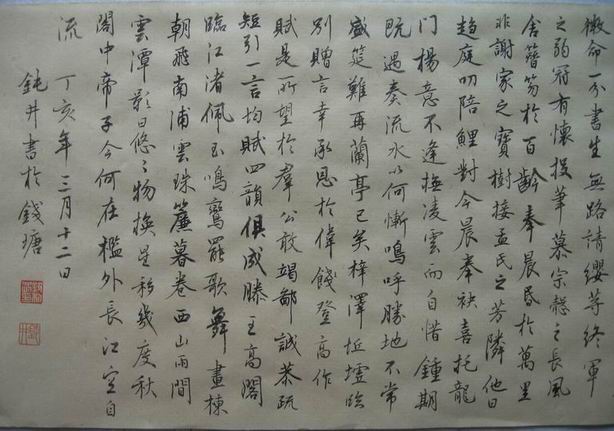 微命一介書生無路請纓等終軍
之弱冠有懷投筆慕宗愨之長風
舍簪笏於百齡奉晨昏於萬里
非謝家之寶樹接孟氏之芳隣他日
趨庭叨陪鯉對今晨奉袂喜托龍
門楊意不逢撫凌雲而自惜鍾期
既遇奏流水以何慚嗚呼勝地不常
盛筵難再蘭亭已矣梓澤坵墟臨
別贈言幸承恩於偉餞登高作
賦是所望於羣公敢竭鄙誠恭疏
短引一言均賦四韻俱成滕王高閣
臨江渚佩玉鳴鸞罷歌舞畫棟
朝飛南浦雲珠簾暮卷西山雨間
雲潭影日悠々物換星移幾度秋
閣中帝子今何在檻外長江空自
流 丁亥年三月十二日
鈍井書於錢塘